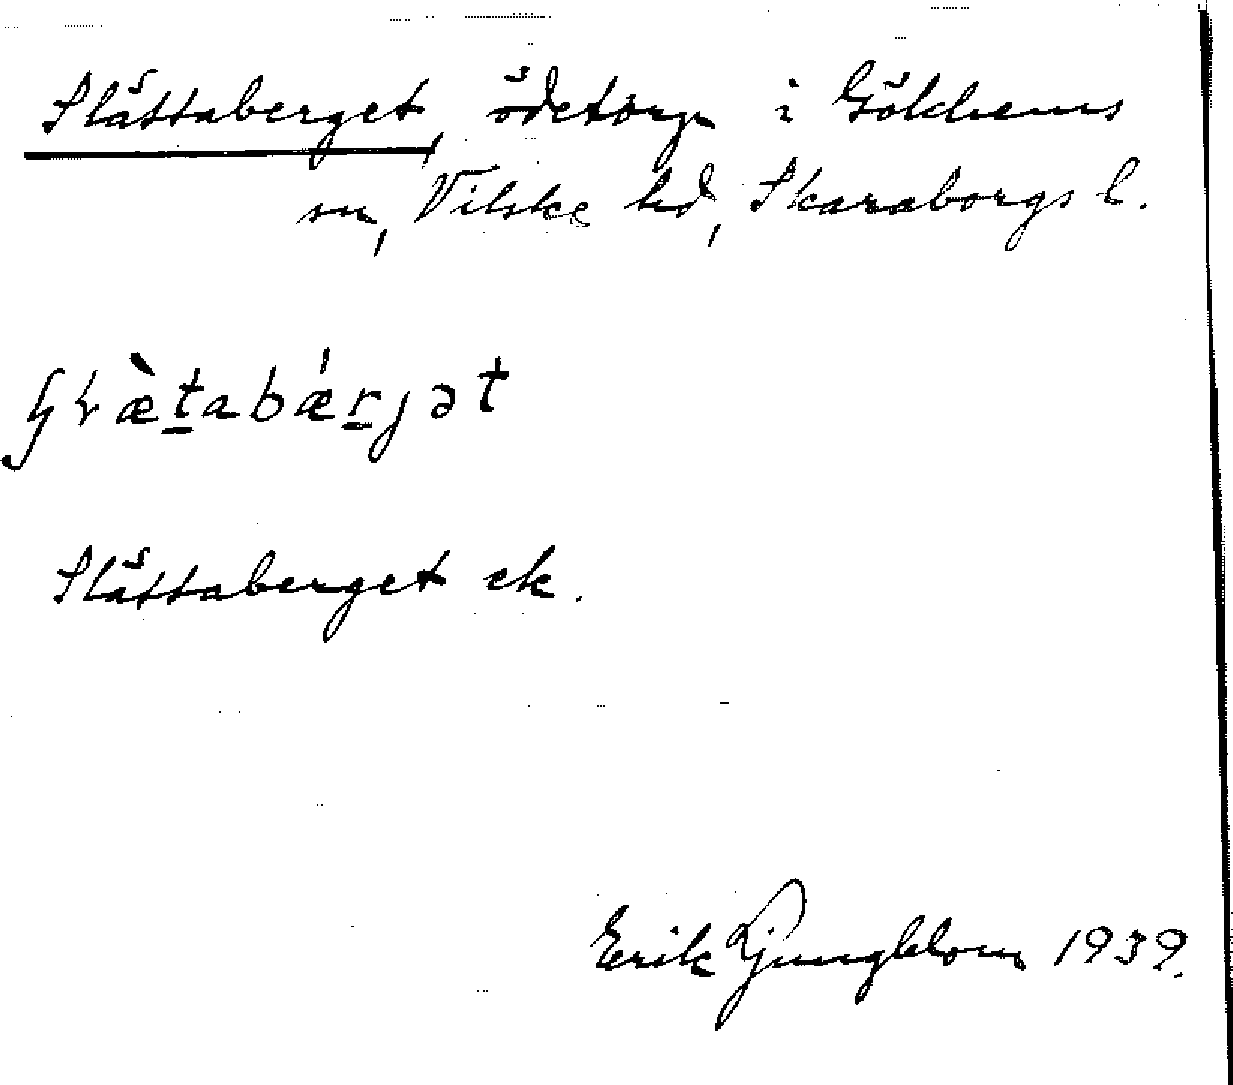 Slättaberget, ödetorp i Gökhems
sn, Vilske hd, Skaraborgs l.
Slättaberget ek.
Erik Ljungblom 1939.